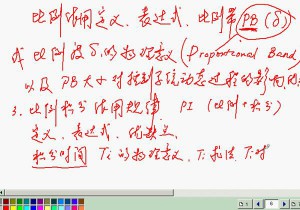 比例作用定义、表达式、比例带 PB (δ)
或 比例度 δ 的物理意义 (Proportional Band)
以及 PB 大小对控制系统动态过程的影响
3. 比例积分作用规律 PI (比例+积分)
定义、表达式、优缺点
积分时间 Ti 的物理意义、Ti 求法、Ti 对
6